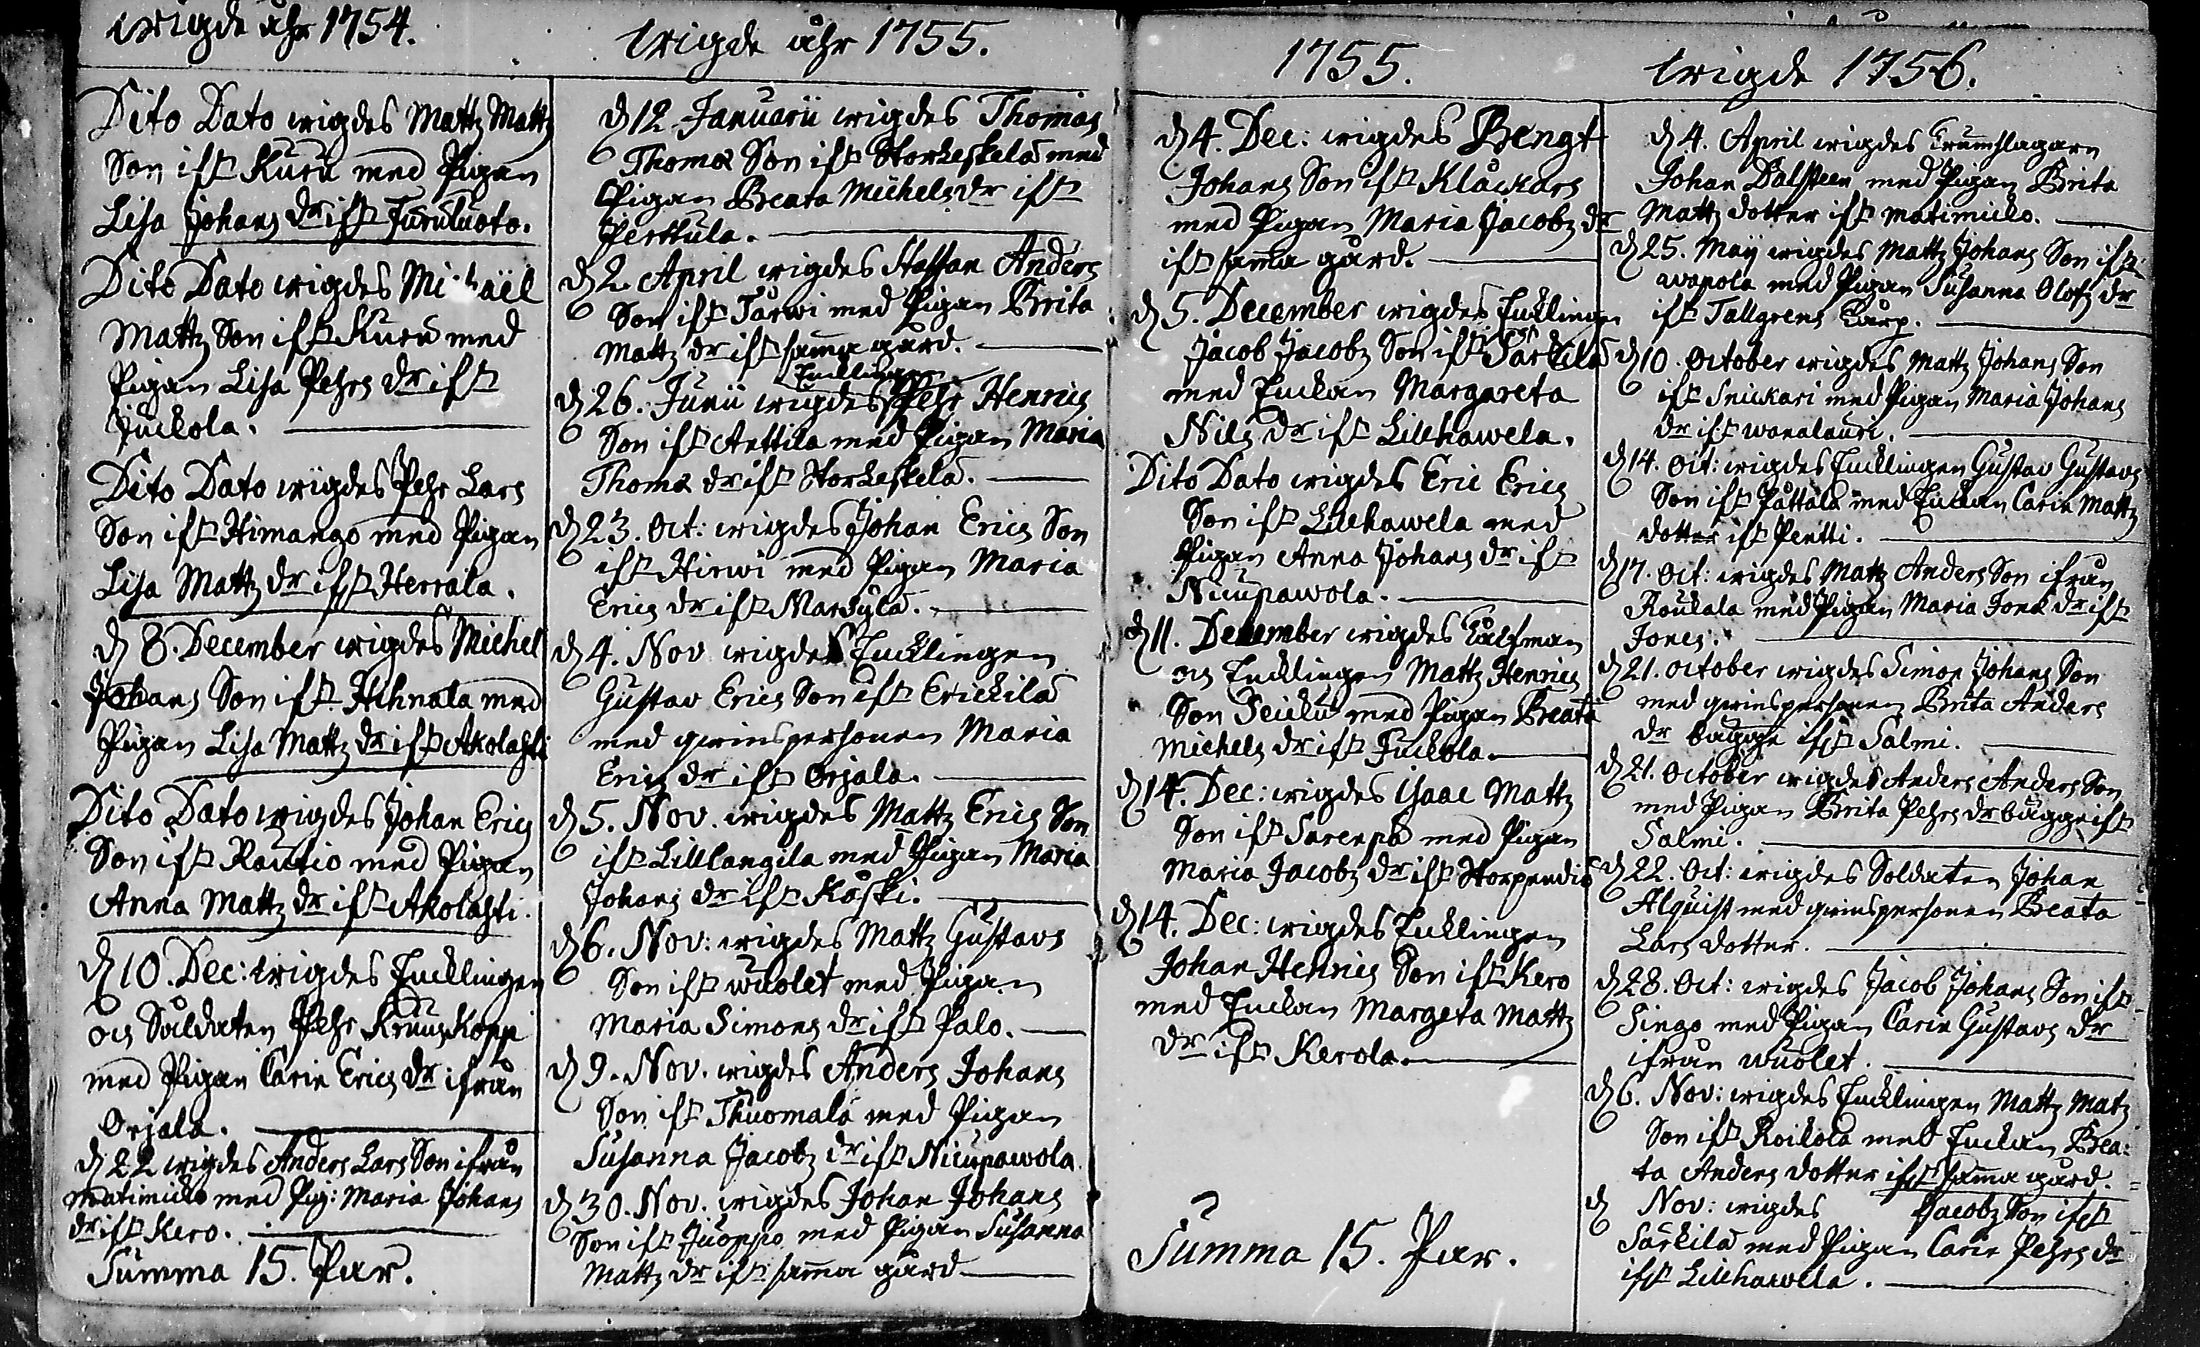 wigde åhr 1754.
Dito Dato wigdes Mattz Mattz
Son ifr Kuru med Pigan
Lisa Johans dr ifr Juruluoto.
Dito Dato wigdes Michaël
Mattz Son ifr Kuru med
Pigan Lisa Pehrs dr ifr
Juckola.
Dito Dato wigdes Pehr Lars
Son ifr Himango med Pigan
Lisa Mattz dr ifr Herrala.
d 8. December wigdes Michel
Johans Son ifr Hihnala med
Pigan Lisa Mattz dr ifr Akolahti
Dito Dato wigdes Johan Erics
Son ifr Rautio med Pigan
Anna Mattz dr ifr Akolahti.
d 10. Dec: wigdes Encklingen
och Saldaten Pehr Kruuskopp
med Pigan Carin Erics dr ifrån
Orjala.
d 22 wigdes Anders Lars Son ifrån
Matimicko med Pig: Maria Johans
dr ifr Kero.
Summa 15. Par.
wigde åhr 1755.
d 12 Januarii wigdes Thomas
Thomæ Son ifr Storkeskela med
Pigan Beata Michels dr ifr
Perttula.
d 2. April wigdes Staffan Anders
Son ifr Jarwi med Pigan Brita
Mattz dr ifr samma gård.
Encklingen
d 26. Junii wigdes Pehr Henrics
Son ifr Anttila med Pigan Maria
Thomæ dr ifr Storkeskela.
d 23. Oct: wigdes Johan Erics Son
ifr Hirwi med Pigan Maria
Erics dr ifr Marsyla.
d 4. Nov wigdes Encklingen
Gustav Erics Son ifr Erickila
med qwinspersonen Maria
Erics dr ifr Orjala.
d 5. Nov. wigdes Mattz Erics Son
ifr Lilllangila med Pigan Maria
Johans dr ifr Kåski.
d 6. Nov: wigdes Mattz Gustavs
Son ifr wuolet med Pigan
Maria Simons dr ifr Palo.
d 9. Nov. wigdes Anders Johans
Son ifr Thuomala med Pigan
Susanna Jacobz dr ifr Nicupawola.
d 30. Nov. wigdes Johan Johans
Son ifr Juoppo med Pigan Susanna
Mattz dr ifr samma gård
1755.
d 4. Dec: wigdes Bengt
Johans Son ifr Klåckars
med Pigan Maria Jacobz dr
ifr samma gård.
d 5. December wigdes Encklingen
Jacob Jacobz Son ifr Sarkila
med Enckan Margareta
Nils dr ifr Lillhawela.
Dito Dato wigdes Eric Erics
Son ifr Lillhawela med
Pigan Anna Johans dr ifr
Nicupawola.
d 11. December wigdes
och Encklingen Mattz Henrics
Son Seicku med Pigan Beata
Michels dr ifr Juckola.
d 14. Dec: wigdes Isaac Mattz
Son ifr Sarenpä med Pigan
Maria Jacobz dr ifr Storpendis
d 14. Dec: wigdes Encklingen
Johan Henrics Son ifr Kero
med Enckan Margeta Mattz
dr ifr Kerola.
Summa 15. Par.
wigde 1756.
d 4. April wigdes Trumslagarn
Johan Dalsteen med Pigan Brita
Mattz dotter ifr Matimicko.
d 25. Maij wigdes Mattz Johans Son ifr
wapola med Pigan Susanna Olofz dr
ifr Tallgrens Torp.
d 10. October wigdes Mattz Johans Son
ifr Snickari med Pigan Maria Johans
dr ifr wanalauri.
d 14. Oct: wigdes Encklingen Gustav Gustavs
Son ifr Påttala med Enckan Carin Mattz
dotter ifr Pentti.
d 17. Oct: wigdes Mattz Anders Son ifrån
Roukala med Pigan Maria Jonæ dr ifr
Jones.
d 21. October wigdes Simon Johans Son
med qwinspersonen Brita Anders
dr Bagge ifr Salmi.
d 21. October wigdes Anders Anders Son
med Pigan Brita Pehrs dr Bagge ifr
Salmi.
d 22. Oct: wigdes Soldaten Johan
Alquist med qwinspersonen Beata
Lars dotter.
d 28. Oct: wigdes Jacob Johans Son ifr
Singo med Pigan Carin Gustavs dr
ifrån wuolet.
d 6. Nov: wigdes Encklingen Mattz Matz
Son ifr Roikola med Enckan Bea:
ta Anders dotter ifr samma gård.
d Nov: wigdes Jacobz Son ifr
Sarkila med Pigan Carin Pehrs dr
ifr Lillhawela.